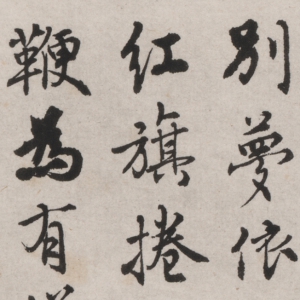 別夢依
红旗捲
鞭為有